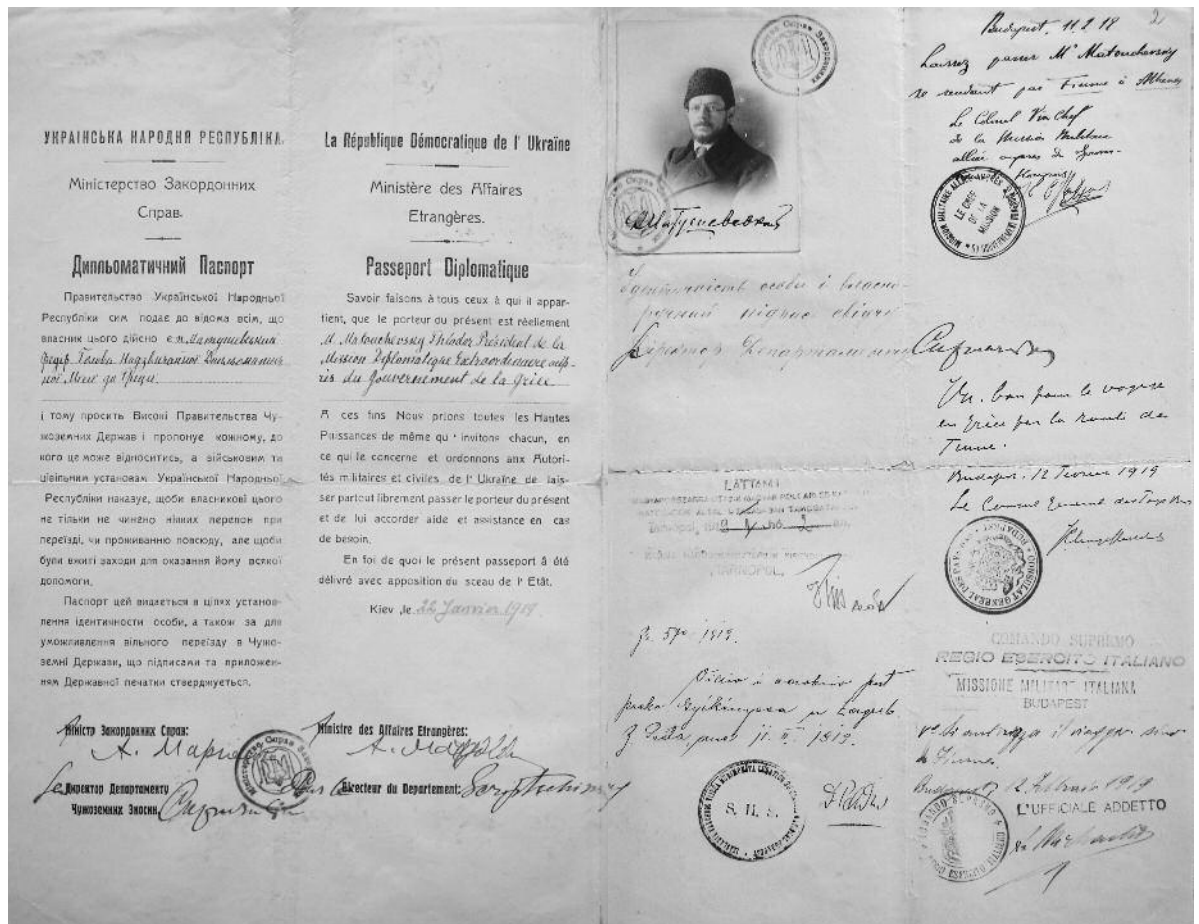 УКРАЇНСЬКА НАРОДНЯ РЕСПУБЛІКА.
Міністерство Закордонних
Справ.
Дипльоматичний Паспорт
Правительство Української Народньої
Республіки сим подає до відома всім, що
власник цього дійсно є п. Матушевський
Федір Голова Надзвичайної Дипльоматич
ної Місії до Греції.
і тому просить Високі Правительства Чу-
жоземних Держав і пропонує кожному, до
кого це може відноситись, а військовим та
цівільним установам Української Народньої
Республіки наказує, щоби власникові цього
не тільки не чинено ніяких перепон при
переїзді, чи проживанню повсюду, але щоби
були вжиті заходи для оказання йому всякої
допомоги.
Паспорт цей видається в цілях установ-
лення ідентичности особи, а також за для
уможливлення вільного переїзду в Чужо-
земні Держави, що підписами та приложен-
ням Державної печатки стверджується.
Міністр Закордонних Справ:
Директор Департаменту
Чужоземних Зносин.
La République Démocratique de l' Ukraïne
Ministère des Affaires
Etrangères.
Passeport Diplomatique
Savoir faisons à tous ceux à qui il appar-
tient, que le porteur du présent est réellement
M. Matouchevsky Théodor Président de la
Mission Diplomatique Extraordinaire aup-
rès du Gouvernement de la Grèce
A ces fins Nous prions toutes les Hautes
Puissances de même qu ' invitons chacun, en
ce qui le concerne et ordonnons aux Autori-
tés militaires et civiles de l' Ukraïne de lais-
ser partout librement passer le porteur du présent
et de lui accorder aide et assistance en cas
de besoin.
En foi de quoi le présent passeport â été
délivré avec apposition du sceau de l' Etât.
Kiev ,le 22 Janvier 1919
Ministre des Affaires Etrangères:
Directeur du Departement:
Міністерство Справ Закордонних
Матушевський
Ідентичність особи і власно-
ручний підпис свідчу
Директор Департаменту
LÁTTAM
Tarnopol, 191
TARNOPOL
1919.
S. H. S.
2
Budapest, 11.2.18
Laissez passer Mr Matouchevsky
se rendant par Fiume à Athenes
Le Colonel Vix Chef
de la Mission Militaire
alliée auprès du Gouver-
LE CHEF
DE LA
MISSION
Vu. bon pour le voyage
en Grèce par la route de
Fiume.
Budapest, 12 Fevrier 1919
Le Consul General des Pays Bas
CONSULAT GENERAL DES PAYS-BAS BUDAPEST
COMANDO SUPREMO
REGIO ESERCITO ITALIANO
MISSIONE MILITARE ITALIANA
BUDAPEST
Vo Si autorizza il viaggio sino
a Fiume.
Budapest 12 Febbraio 1919
L'UFFICIALE ADDETTO